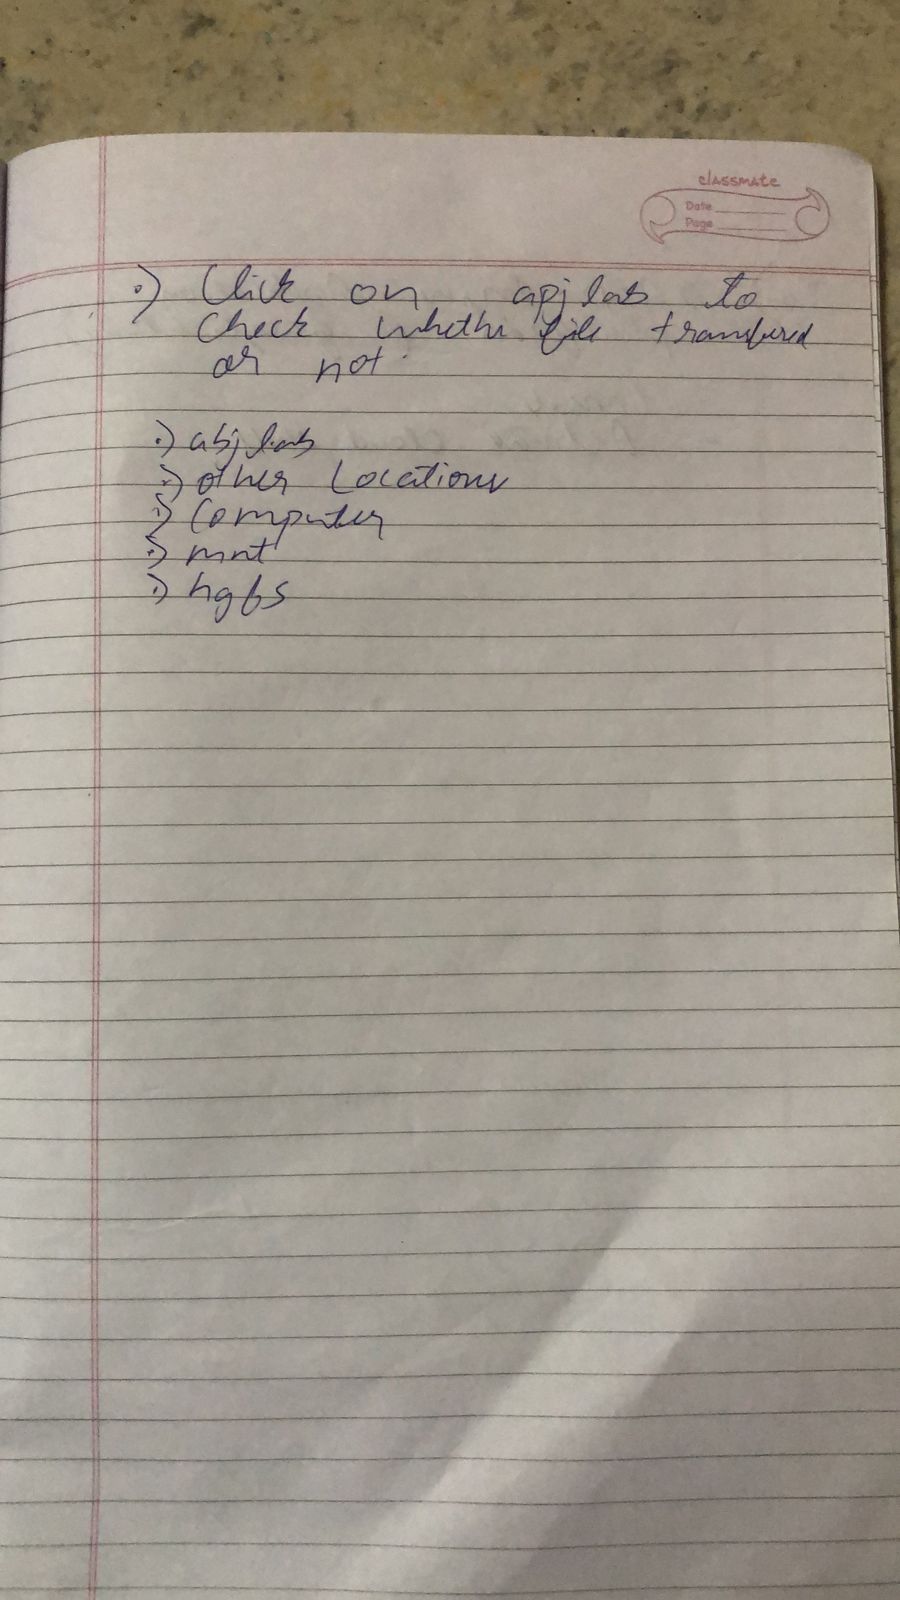 classmate
Date
Page
·) Click on apj lab to
check whethe file transfered
or not.
·) abj lab
·) other Locations
·) Computer
·) mnt
·) hgfs